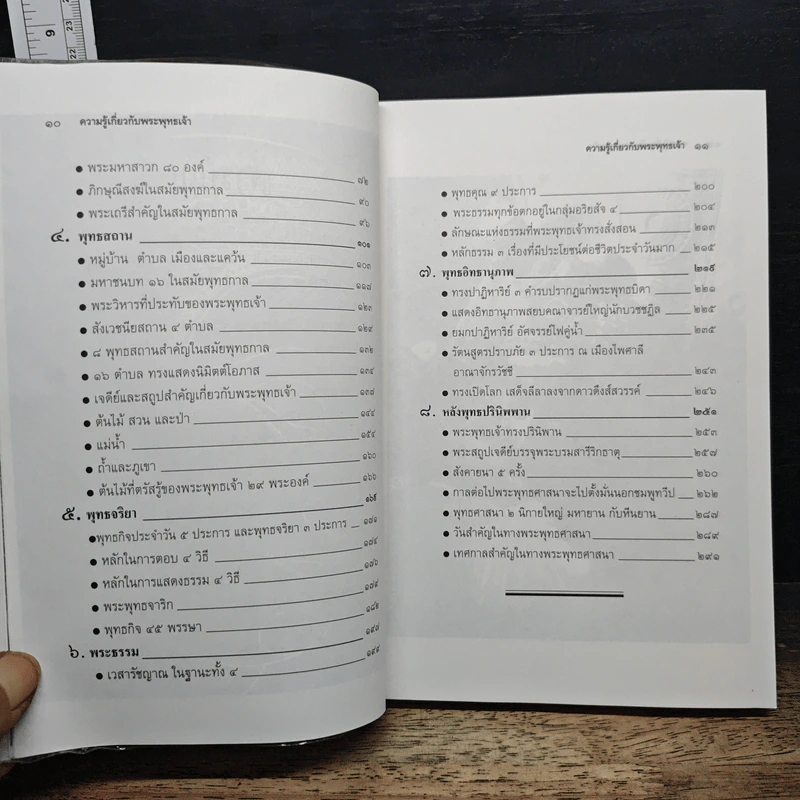 9
22
23
๑๐ ความรู้เกี่ยวกับพระพุทธเจ้า
● พระมหาสาวก ๘๐ องค์ ๗๒
● ภิกษุณีสงฆ์ในสมัยพุทธกาล ๙๐
● พระเถรีสำคัญในสมัยพุทธกาล ๙๖
๔. พุทธสถาน ๑๐๑
● หมู่บ้าน ตำบล เมืองและแคว้น ๑๐๓
● มหาชนบท ๑๖ ในสมัยพุทธกาล ๑๑๗
● พระวิหารที่ประทับของพระพุทธเจ้า ๑๒๓
● สังเวชนียสถาน ๔ ตำบล ๑๒๙
● ๘ พุทธสถานสำคัญในสมัยพุทธกาล ๑๓๒
● ๑๖ ตำบล ทรงแสดงนิมิตต์โอภาส ๑๓๔
● เจดีย์และสถูปสำคัญเกี่ยวกับพระพุทธเจ้า ๑๓๘
● ต้นไม้ สวน และป่า ๑๔๔
● แม่น้ำ ๑๕๔
● ถ้ำและภูเขา ๑๖๐
● ต้นไม้ที่ตรัสรู้ของพระพุทธเจ้า ๒๙ พระองค์ ๑๖๖
๕. พุทธจริยา ๑๖๙
●พุทธกิจประจำวัน ๕ ประการ และพุทธจริยา ๓ ประการ ๑๗๑
● หลักในการตอบ ๔ วิธี ๑๗๔
● หลักในการแสดงธรรม ๔ วิธี ๑๗๖
● พระพุทธจาริก ๑๗๙
● พุทธกิจ ๔๕ พรรษา ๑๘๒
๖. พระธรรม ๑๙๗
● เวสารัชญาณ ในฐานะทั้ง ๔ ๑๙๙
ความรู้เกี่ยวกับพระพุทธเจ้า ๑๑
● พุทธคุณ ๙ ประการ ๒๐๐
● พระธรรมทุกข้อตกอยู่ในกลุ่มอริยสัจ ๔ ๒๐๔
● ลักษณะแห่งธรรมที่พระพุทธเจ้าทรงสั่งสอน ๒๑๓
● หลักธรรม ๓ เรื่องที่มีประโยชน์ต่อชีวิตประจำวันมาก ๒๑๕
๗. พุทธอิทธานุภาพ ๒๑๙
● ทรงปาฏิหาริย์ ๓ คำรบปรากฏแก่พระพุทธบิดา ๒๒๑
● แสดงอิทธานุภาพสยบคณาจารย์ใหญ่นักบวชชฎิล ๒๒๕
● ยมกปาฏิหาริย์ อัศจรรย์ไฟคู่น้ำ ๒๓๕
● รัตนสูตรปราบภัย ๓ ประการ ณ เมืองไพศาลี
อาณาจักรวัชชี ๒๔๓
● ทรงเปิดโลก เสด็จลีลาลงจากดาวดึงส์สวรรค์ ๒๔๖
๘. หลังพุทธปรินิพพาน ๒๕๑
● พระพุทธเจ้าทรงปรินิพาน ๒๕๓
● พระสถูปเจดีย์บรรจุพระบรมสารีริกธาตุ ๒๕๗
● สังคายนา ๕ ครั้ง ๒๖๐
● กาลต่อไปพระพุทธศาสนาจะไปตั้งมั่นนอกชมพูทวีป ๒๖๒
● พุทธศาสนา ๒ นิกายใหญ่ มหายาน กับหีนยาน ๒๘๗
● วันสำคัญในทางพระพุทธศาสนา ๒๘๙
● เทศกาลสำคัญในทางพระพุทธศาสนา ๒๙๑